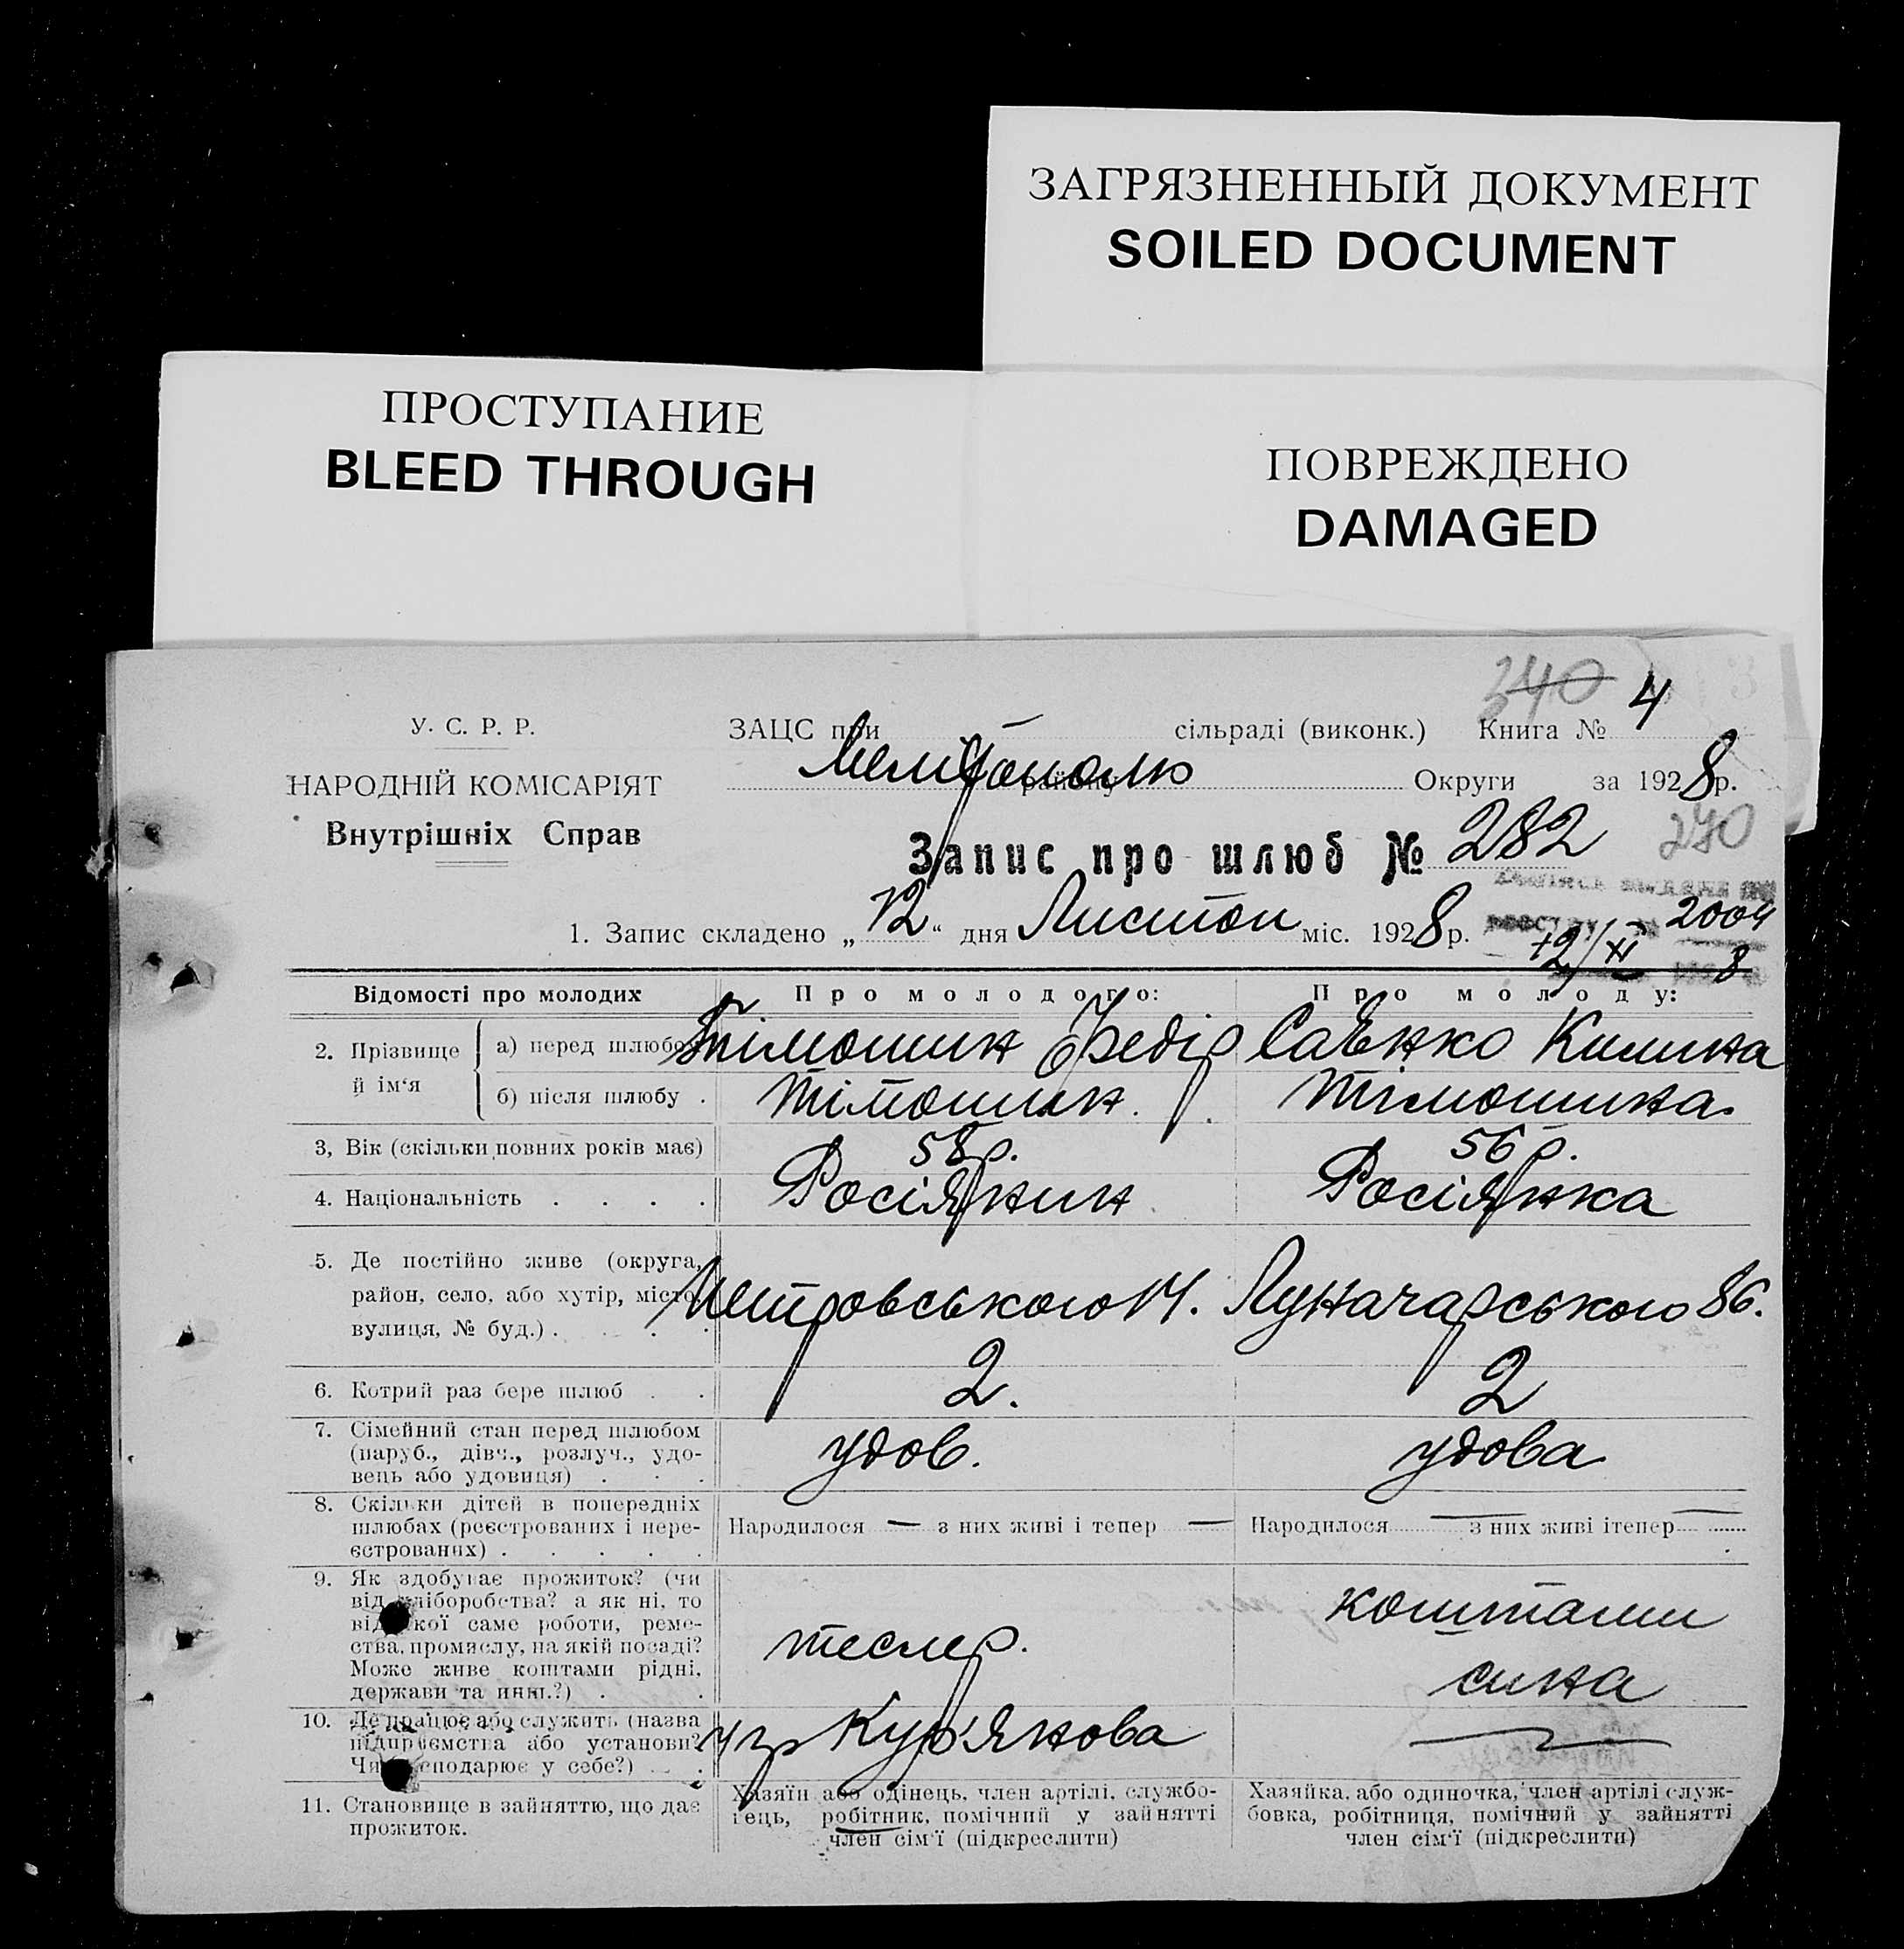 ЗАГРЯЗНЕННЫЙ ДОКУМЕНТ
SOILED DOCUMENT
ПРОСТУПАНИЕ
BLEED THROUGH
ПОВРЕЖДЕНО
DAMAGED
340 4
У. С. Р. Р.
ЗАЦС при сільраді (виконк.) Книга №
НАРОДНІЙ КОМІСАРІЯТ
Внутрішніх Справ
Мелітополю району Округи за 1928р.
Запис про шлюб № 282 270
1. Запис складено „12“ дня Листоп міс. 1928р.
2004
12/XI 8
Відомості про молодих Про молодого: Про молоду:
2. Прізвище й ім‘я
а) перед шлюбом Тімошин Федір Савенко Килина
б) після шлюбу . Тімошин. Тімошина.
3, Вік (скільки повних років має) 58р. 56 р.
4. Національність . . . . Росіянин Росіянка
5. Де постійно живе (округа,
район, село, або хутір, місто,
вулиця, № буд.) . . . . Петровського 14. Луначарського 86.
6. Котрий раз бере шлюб . . 2. 2
7. Сімейний стан перед шлюбом
(паруб., дівч., розлуч., удо-
вець або удовиця) . . . удов. удова
8. Скільки дітей в попередніх
шлюбах (реєстрованих і нере-
єстрованих) . . . . .
Народилося — з них живі і тепер — Народилося — з них живі ітепер —
9. Як здобуває прожиток? (чи
від хліборобства? а як ні, то
від якої саме роботи, реме-
ства, промислу, на якій посаді?
Може живе коштами рідні,
держави та инш.?) . .
тесляр. коштами
сина
10. Де працює або служить (назва
підприємства або установи?
Чи господарює у себе?) . . .
у гр Кур'янова —
11. Становище в зайняттю, що дає
прожиток.
Хазяїн або одінець, член артілі, службо-
вець, робітник, помічний у зайнятті
член сім‘ї (підкреслити)
Хазяйка, або одиночка, член артілі служ-
бовка, робітниця, помічний у зайнятті
член сім‘ї (підкреслити)